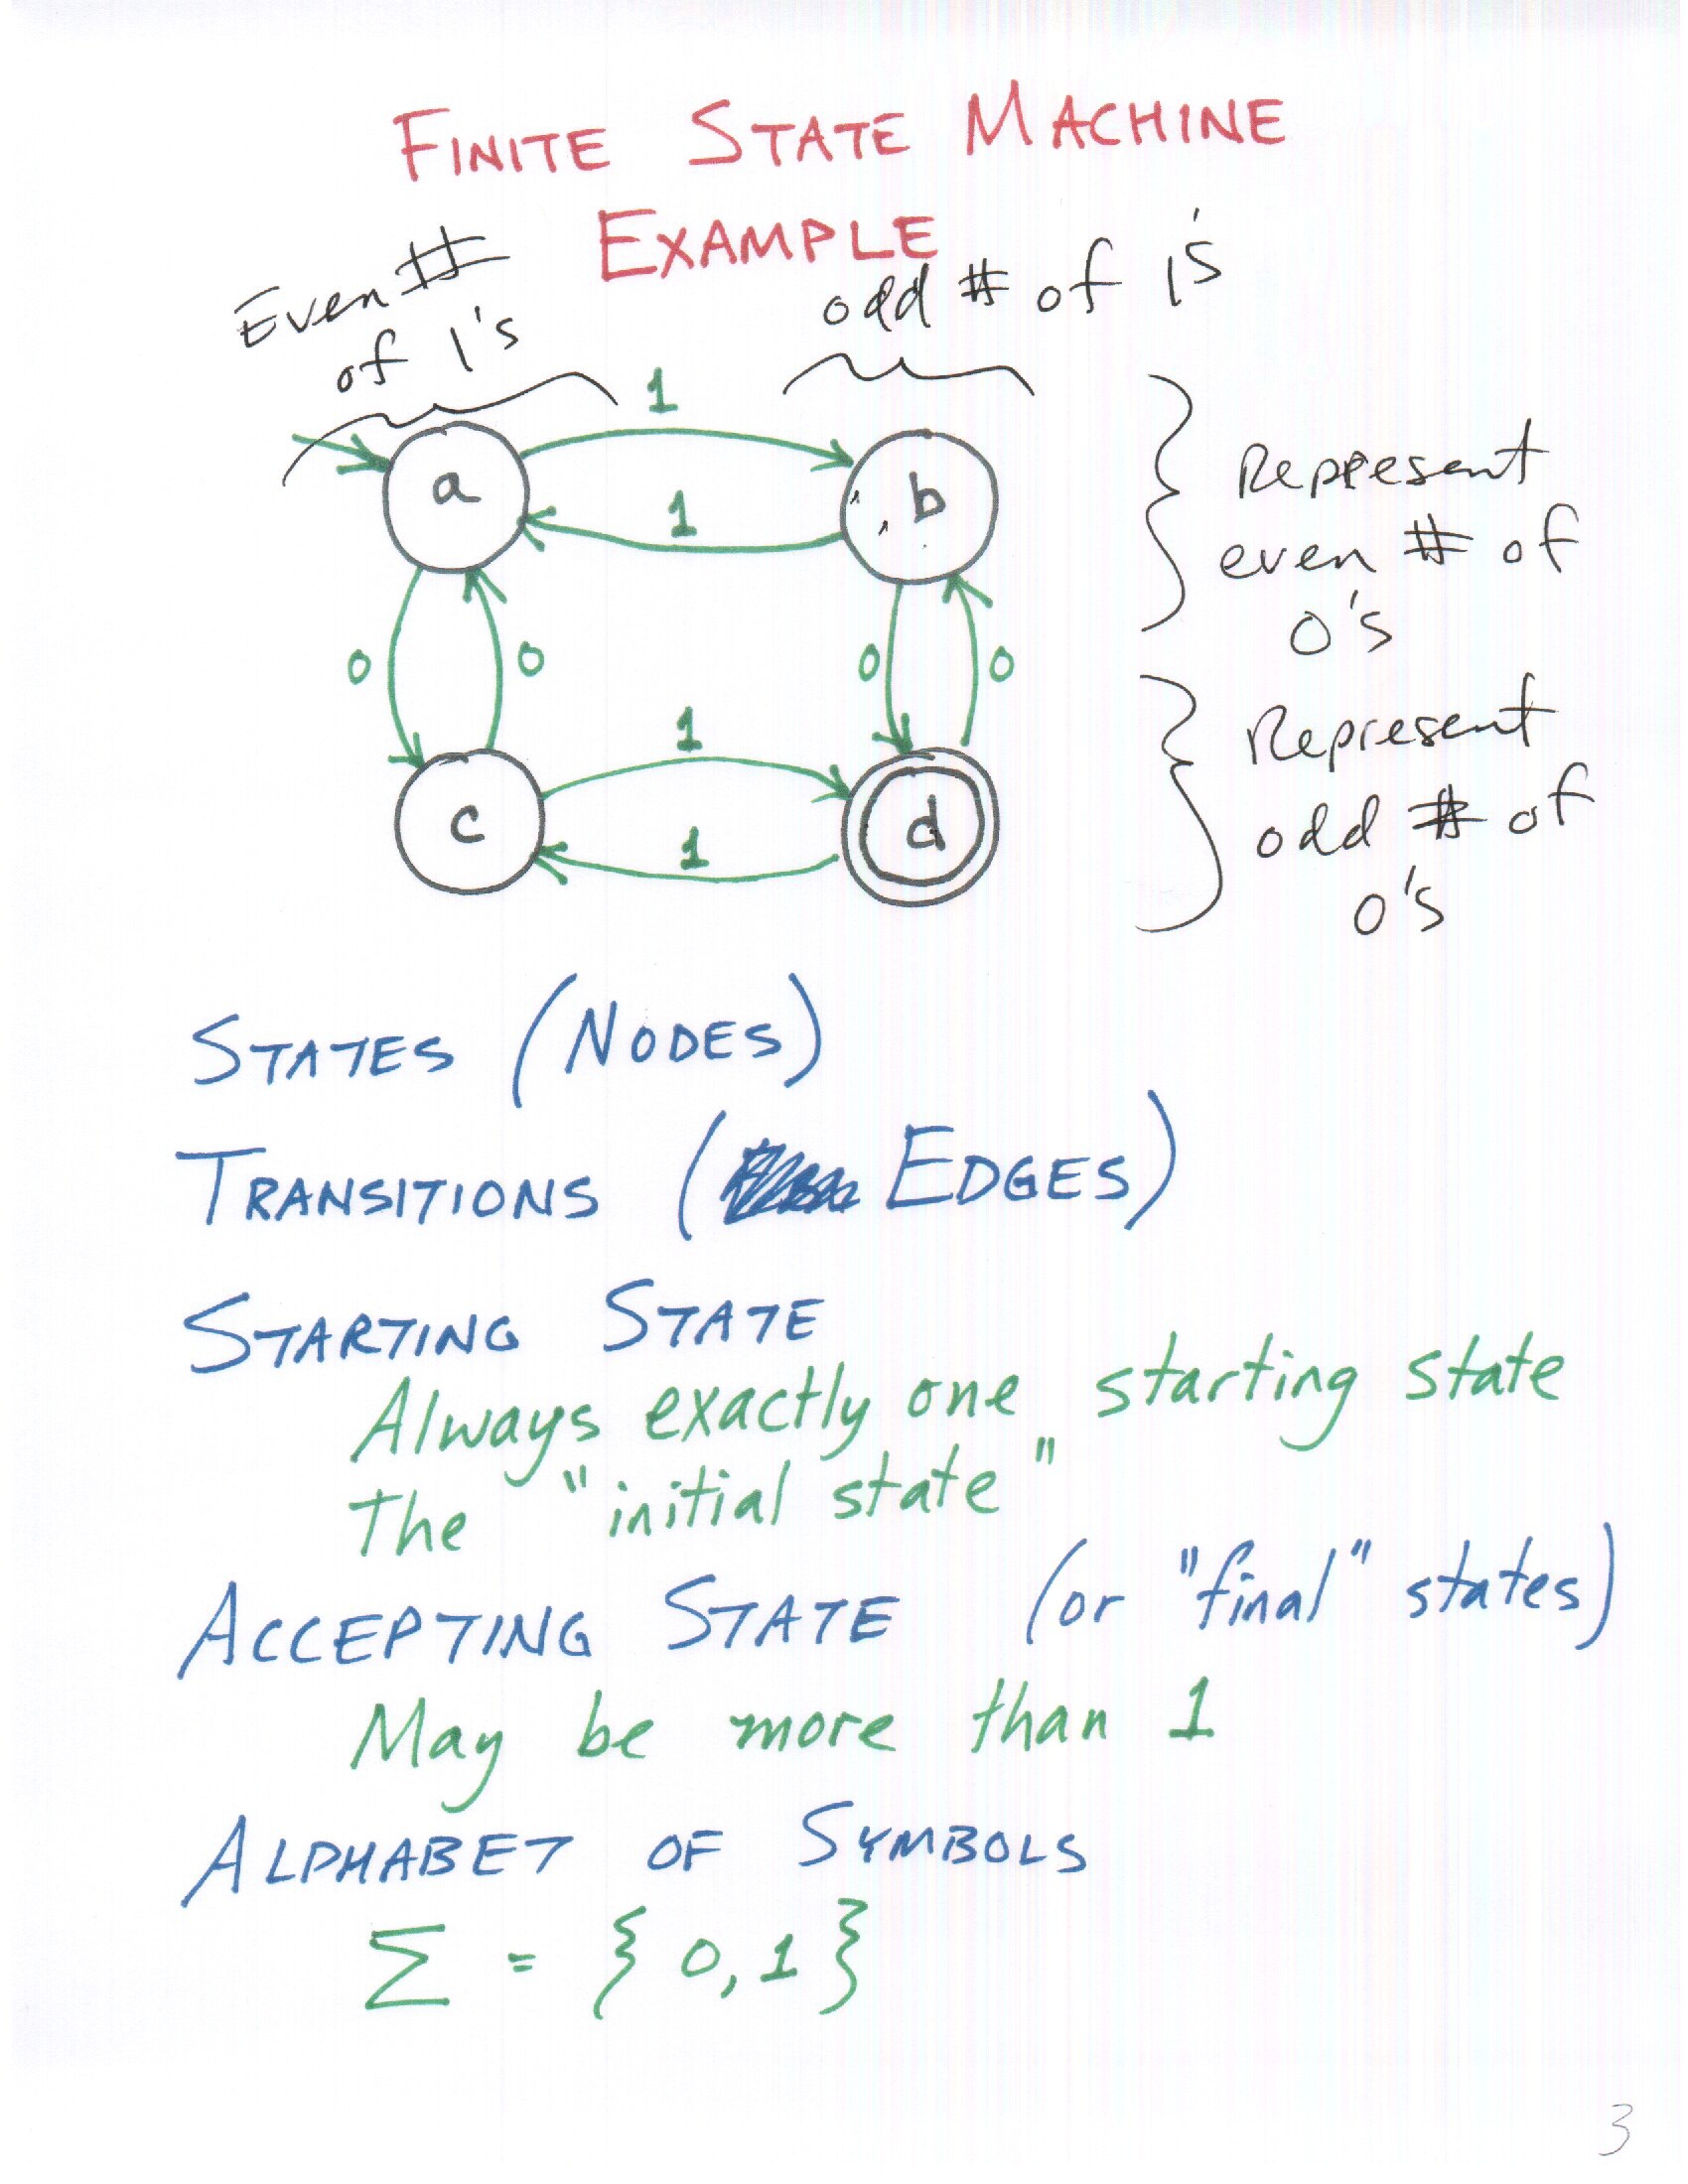 FINITE STATE MACHINE
EXAMPLE
Even #
of 1's
odd # of 1's
1
a
b
1
Represent
even # of
0's
0
0
0
0
1
c
d
1
Represent
odd # of
0's
STATES (NODES)
TRANSITIONS (EDGES)
STARTING STATE
Always exactly one starting state
The "initial state"
ACCEPTING STATE (or "final" states)
May be more than 1
ALPHABET OF SYMBOLS
Σ = { 0, 1 }
3